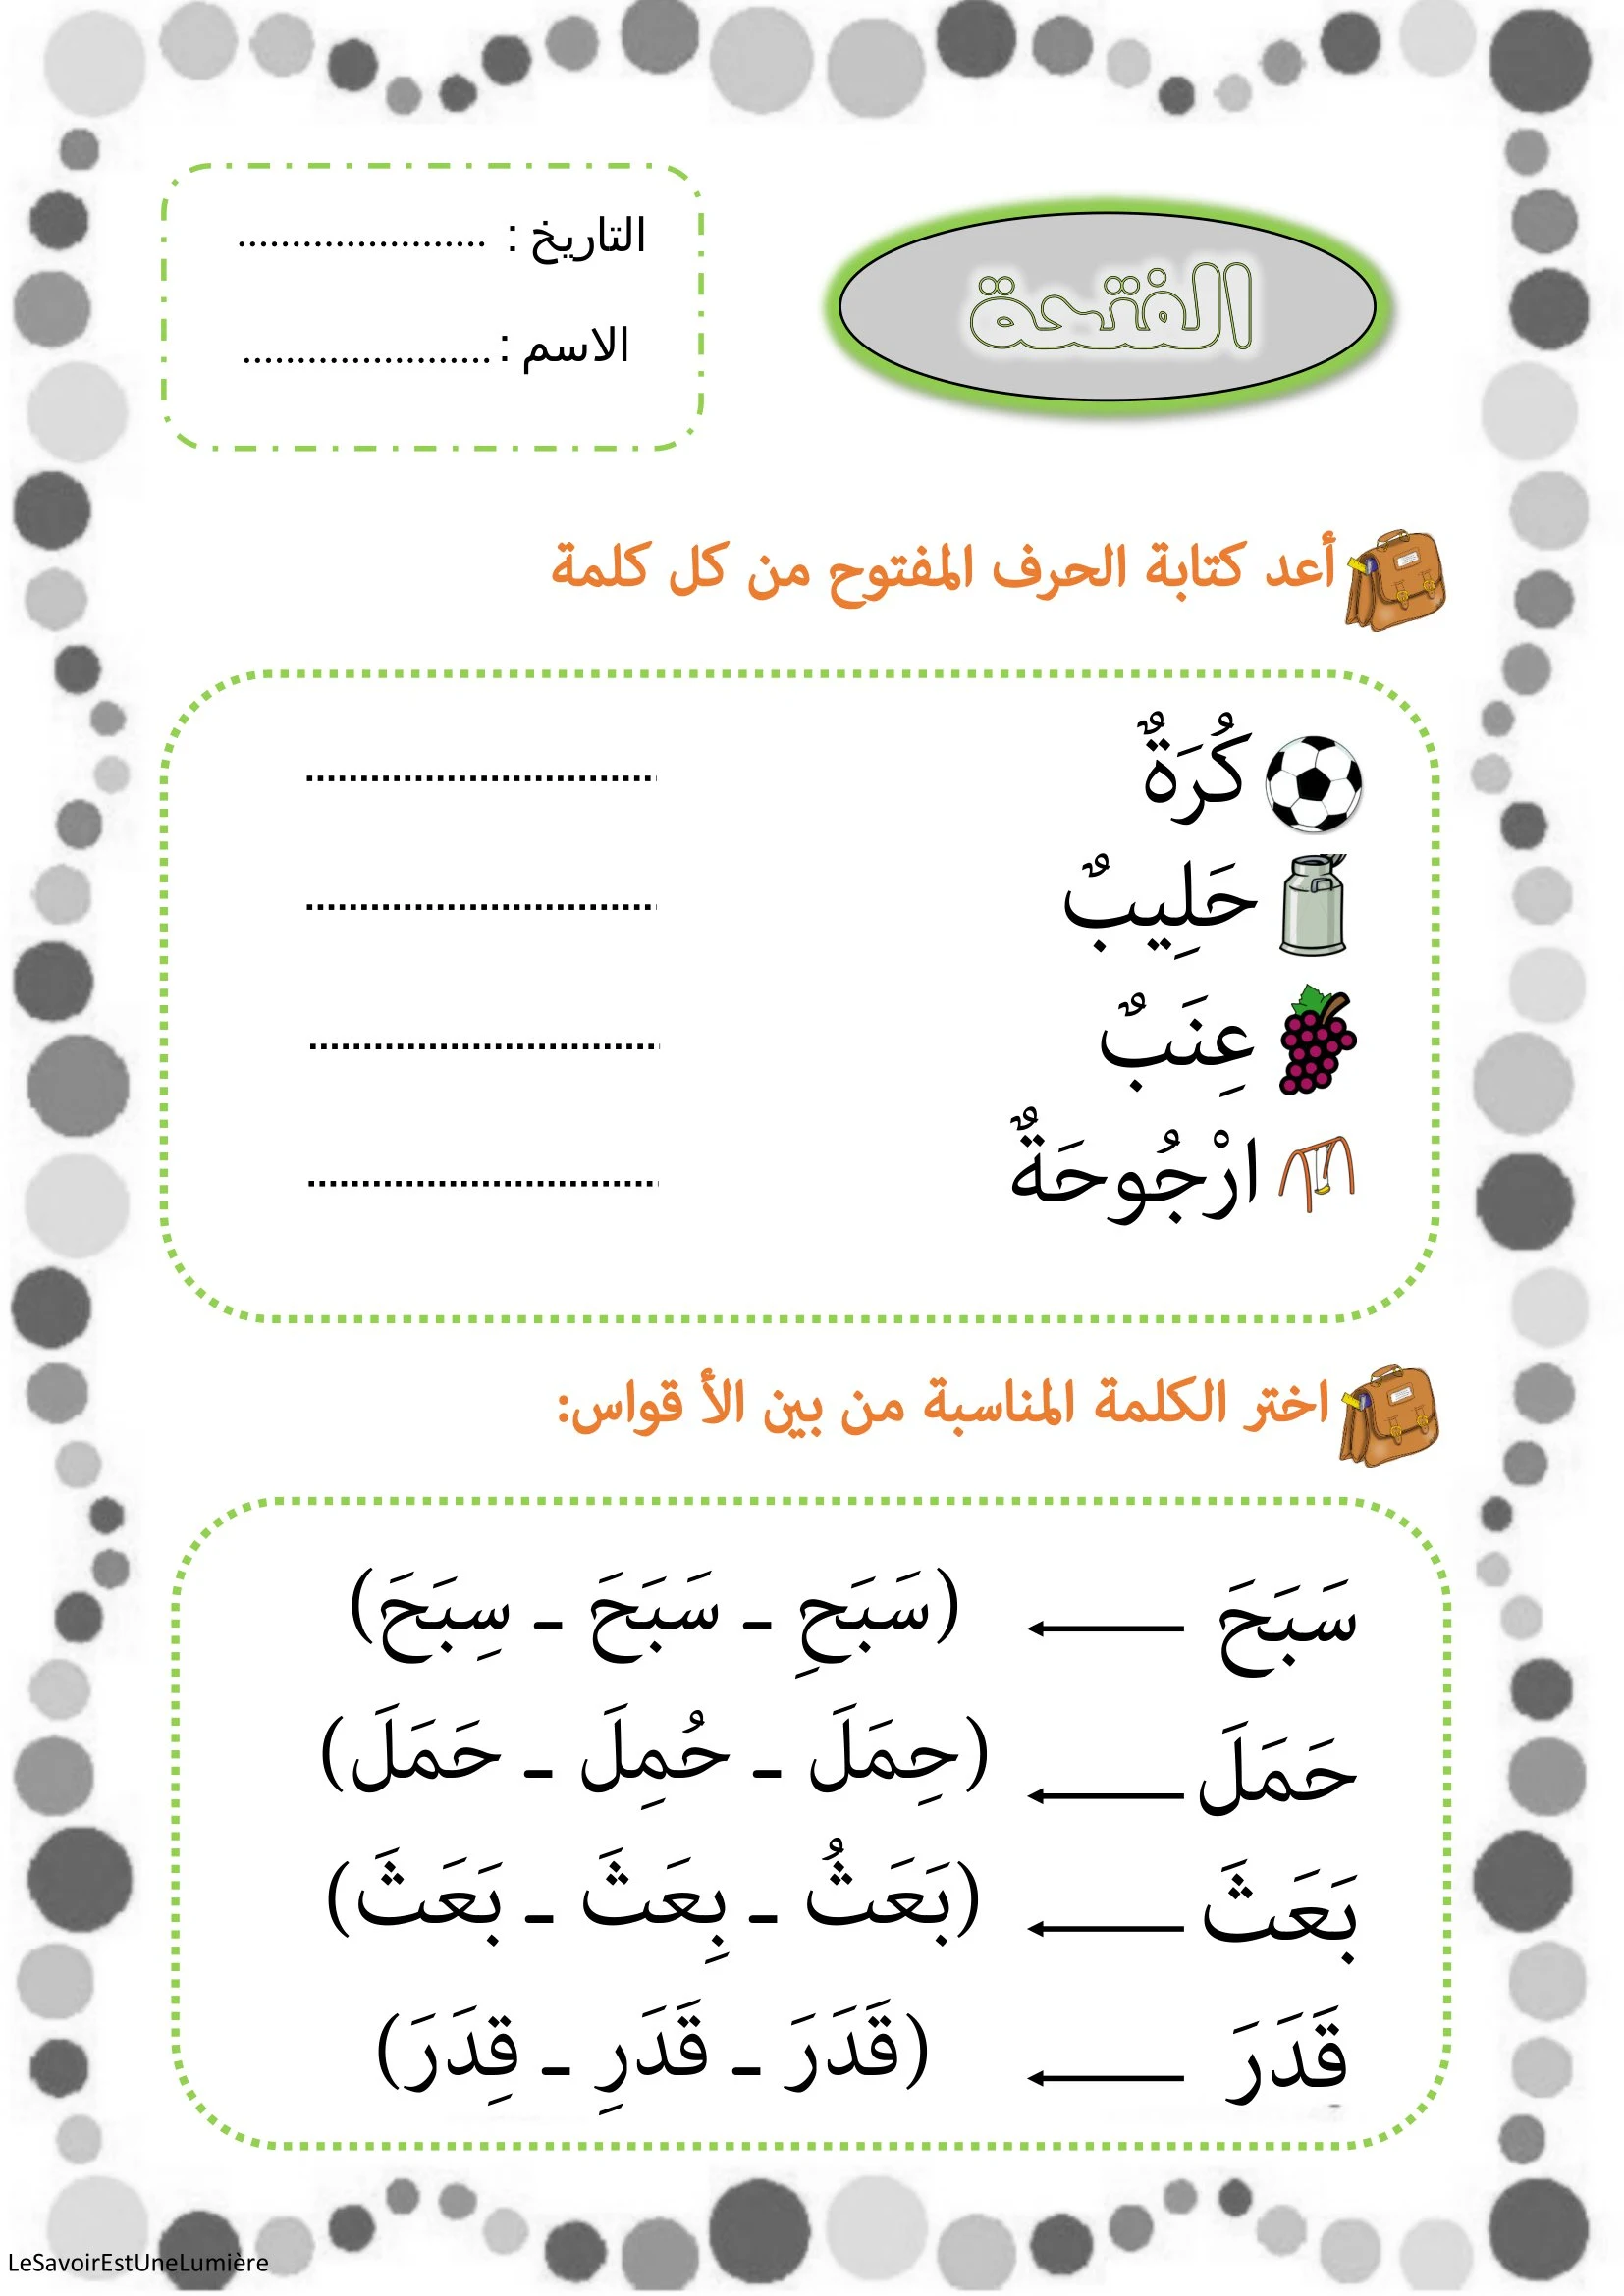 الفتحة
التاريخ : .......................
الاسم : .......................
أعد كتابة الحرف المفتوح من كل كلمة
كُرَةٌ ....................................
حَلِيبٌ ....................................
عِنَبٌ ....................................
ارْجُوحَةٌ ....................................
اختر الكلمة المناسبة من بين الأ قواس:
سَبَحَ ← (سَبَحِ - سَبَحَ - سِبَحَ)
حَمَلَ ← (حِمَلَ - حُمِلَ - حَمَلَ)
بَعَثَ ← (بَعَثُ - بِعَثَ - بَعَثَ)
قَدَرَ ← (قَدَرَ - قَدَرِ - قِدَرَ)
LeSavoirEstUneLumière